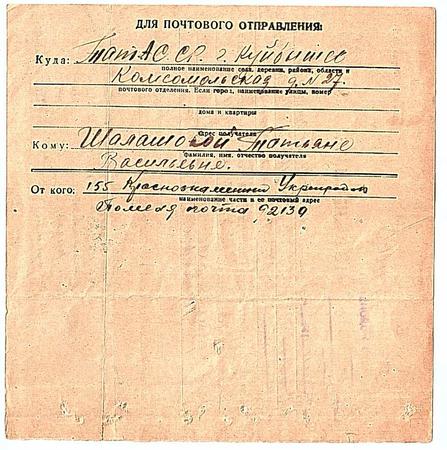 ДЛЯ ПОЧТОВОГО ОТПРАВЛЕНИЯ:
Куда: ТатАССР г Куйбышев
полное наименование села, деревни, района, области и
Комсомольская д N 27.
почтового отделения. Если город, наименование улицы, номер
дома и квартиры
адрес получателя
Кому: Шалашовой Татьяне
фамилия, имя, отчество получателя
Васильевне.
От кого: 155 Краснознаменный Укрепрайон
наименование части и ее почтовый адрес
Полевая почта 92130